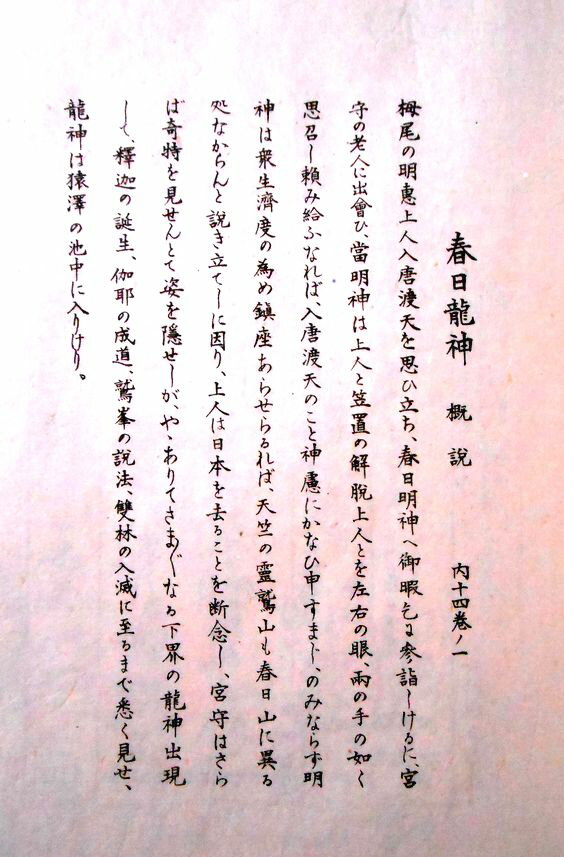 春日龍神 概說 內十四巻ノ一
栂尾の明惠上人入唐渡天を思ひ立ち、春日明神へ御暇乞に參詣しけるに、宮
守の老人に出會ひ、當明神は上人と笠置の解脫上人とを左右の眼、兩の手の如く
思召し賴み給ふなれば、入唐渡天のこと神慮にかなひ申すまじ、のみならず明
神は衆生濟度の為め鎮座あらせらるれば、天竺の靈鷲山も春日山に異る
処なからんと説き立てしに因り、上人は日本を去ることを断念し、宮守はさら
ば奇特を見せんとて姿を隱せしが、やゝありてさま〴〵なる下界の龍神出現
して、釋迦の誕生、伽耶の成道、鷲峯の說法、雙林の入滅に至るまで悉く見せ、
龍神は猿澤の池中に入りけり。